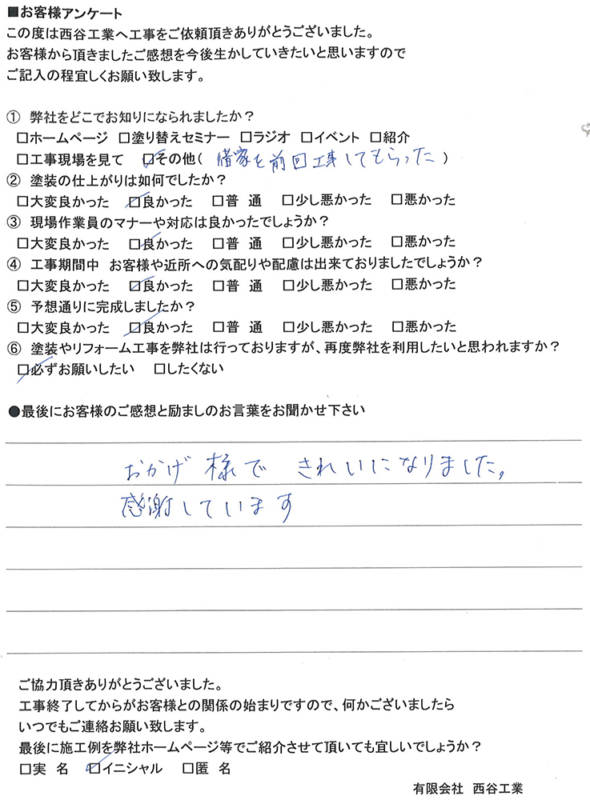 ■お客様アンケート
この度は西谷工業へ工事をご依頼頂きありがとうございました。
お客様から頂きましたご感想を今後生かしていきたいと思いますので
ご記入の程宜しくお願い致します。
① 弊社をどこでお知りになられましたか？
□ホームページ □塗り替えセミナー □ラジオ □イベント □紹介
□工事現場を見て □その他（ 借家を前回工事してもらった ）
② 塗装の仕上がりは如何でしたか？
□大変良かった □良かった □普 通 □少し悪かった □悪かった
③ 現場作業員のマナーや対応は良かったでしょうか？
□大変良かった □良かった □普 通 □少し悪かった □悪かった
④ 工事期間中 お客様や近所への気配りや配慮は出来ておりましたでしょうか？
□大変良かった □良かった □普 通 □少し悪かった □悪かった
⑤ 予想通りに完成しましたか？
□大変良かった □良かった □普 通 □少し悪かった □悪かった
⑥ 塗装やリフォーム工事を弊社は行っておりますが、再度弊社を利用したいと思われますか？
□必ずお願いしたい □したくない
●最後にお客様のご感想と励ましのお言葉をお聞かせ下さい
おかげ様で きれいになりました。
感謝しています
ご協力頂きありがとうございました。
工事終了してからがお客様との関係の始まりですので、何かございましたら
いつでもご連絡お願い致します。
最後に施工例を弊社ホームページ等でご紹介させて頂いても宜しいでしょうか？
□実 名 □イニシャル □匿 名
有限会社 西谷工業